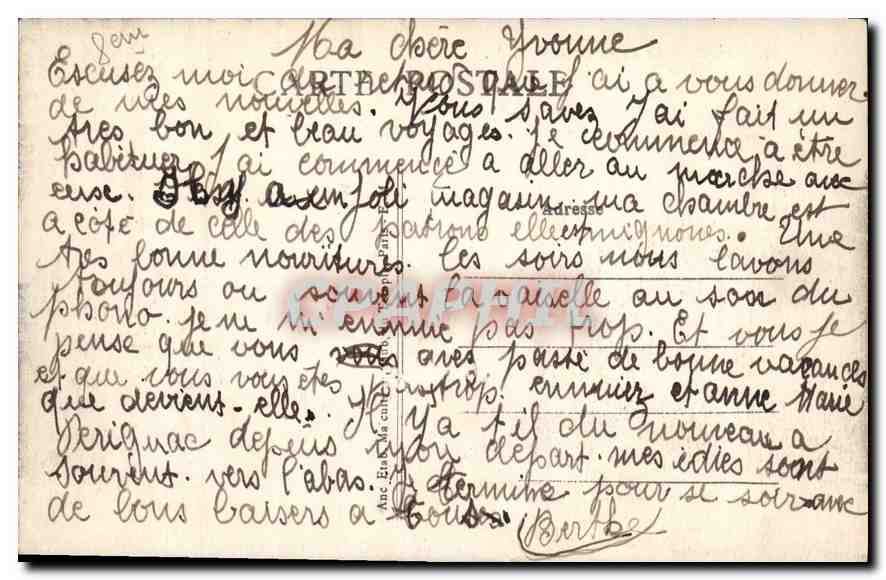 8em
Ma chère Yvonne
CARTE POSTALE
Escusez moi du retard que j'ai a vous donner
de mes nouvelles. Vous savez J'ai fait un
tres bon et beau voyages. je commence a être
habituer J'ai commencé a aller au marche aux
Il y a un joli magasin ma chambre est
Adresse
a côté de celle des patrons elle et mignones. Une
tres bonne nouritures. les soirs nous lavons
toujours ou souvent la vaiselle au son du
phono. je ne m'ennuie pas trop. Et vous je
pense que vous avez passé de bonne vacances
et que vous vous êtes pas trop ennuiez et anne Marie
que devient-elle. Il y a t il du nouveau a
Perignac depuis mon départ. mes idies sont
souvent vers l'abas. Je termine pour se soir aux
de bons baisers a tous
Berthe
Anc Etab. Ma
CPAPHIL